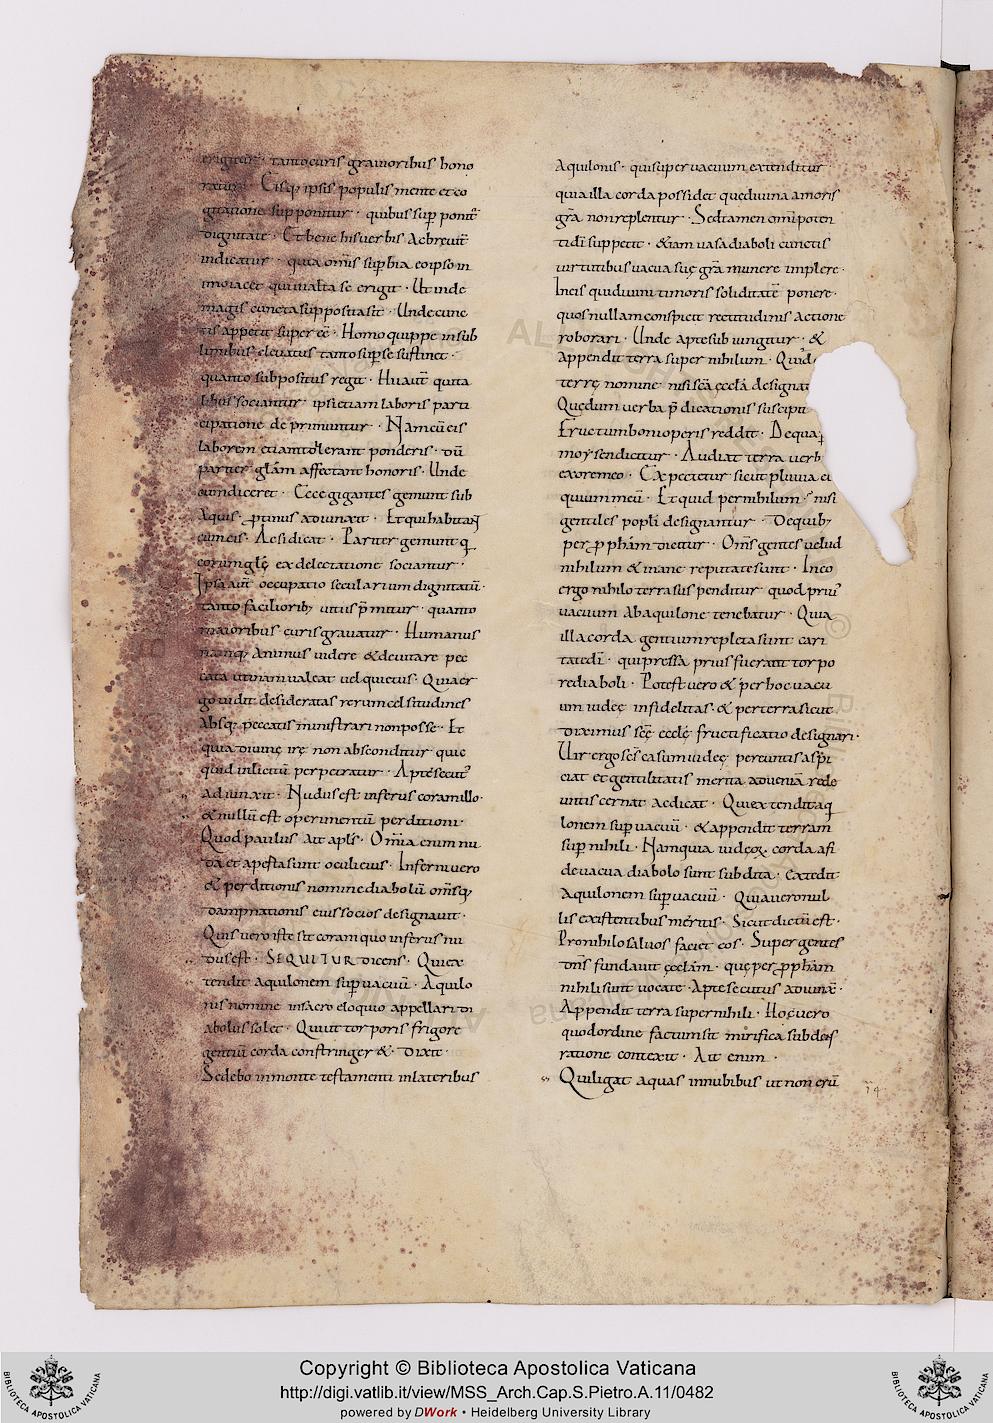 erigitur · tanto curis gravioribus hono
ratur · Eisq; ipsis populis mente et co
gitatione supponitur · quibus sup ponit̄
dignitate · Et bene his verbis a&breviт̄
indicatur · quia om̄is sup̄bia eo ipso in
imo iacet quo in alta se erigit · Ut inde
magis cunctis supposita sit · Unde cunc
tis appetit super eē · Homo quippe in sub
limibus elevatus tanto sup se sustinet ·
quanto subpositus regit · Hi aut̄ qui ta
libus sociantur · ipsi etiam laboris parti
cipatione deprimuntur · Nam cū eis
laborem etiam tolerant ponderis · dū
pariter glām affectant honoris · Unde
cum diceret · Ecce gigantes gemunt sub
aquis · p̱tinus adiunxit · Et qui habitant
cum eis · Ac si dicat · Pariter gemunt q̄
eorum glę ex delectatione sociantur ·
Ipsa aut̄ occupatio secularium dignitatū ·
tanto faciliorib; vitiis p̄mitur · quanto
maioribus curis gravatur · Humanus
namq; animus videre & devitare pec
cata utinam valeat vel quietus · Quia er
go vidit desideratas rerum celsitudines
absq; peccatis ministrari non posse · Et
quia divinę irę non absconditur quic
quid inlicitū perpetratur · Apte secut̄
adiunxit · Nudus est infernus coram illo ·
& nullū est operimentū perditioni ·
Quod paulus ait apl̄s · Om̄ia enim nu
da et aperta sunt oculis eius · Inferni vero
& perditionis nomine diabolū om̄isq;
dampnationis eius socios designavit ·
Quis vero iste sit coram quo infernus nu
dus est · SEQUITUR dicens · Qui ex
tendit aquilonem sup vacuū · Aquilo
nis nomine in sacro eloquio appellari di
abolus solet · Qui ut torporis frigore
gentiū corda constringer& · dixit ·
Sedebo in monte testamenti in lateribus
Aquilonis · qui super vacuum extenditur
quia illa corda possidet quę divini amoris
gr̄a non replentur · Sed tamen om̄ipoten
ti dī suppetit · &iam vasa diaboli cunctis
virtutibus vacua suę gr̄a munere implere ·
In eis quid divini timoris soliditatē ponere ·
quos nullam conspicit rectitudinis actione
roborari · Unde apte subiungitur · &
appendit terra super nihilum · Quid
terrę nomine nisi sc̄a ęcclā designa
Quę dum verba p̄dicationis suscipit
fructum boni operis reddit · De qua
moysen dicitur · Audiat terra verb
ex ore meo · Expectetur sicut pluvia el
quium meū · Et quid per nihilum · nisi
gentiles populi designantur · De quib;
per p̱pham dicitur · Om̄s gentes velud
nihilum & inane reputate sunt · In eo
ergo nihilo terra suspenditur quod prius
vacuum ab aquilone tenebatur · Quia
illa corda gentium repleta sunt cari
tate dī · qui pressa prius fuerant torpo
re diaboli · Potest vero & per hoc vacu
um iudeę infidelitas · & per terra sicut
diximus sc̄ę eccl̄ę fructificatio designari ·
Vir ergo sc̄s casum iudeę pereuntis aspi
ciat et gentilitatis merita advenien̄ rede
untis cernat ac dicat · Qui extendit aq
lonem sup vacuū · & appendit terram
sup nihili · Nam quia iudeoꝝ corda a fi
de vacua diabolo sunt subdita · Extendit
aquilonem sup vacuū · Quia vero nul
lis existentibus meritis · Sicut dictū est ·
Pro nihilo salvos faciet eos · Super gentes
dn̄s fundavit ęcclām · quę per p̱pham
nihili sunt vocate · Apte secutus adiunx̄ ·
Appendit terra super nihili · Hoc vero
quod ordine factum sit mirifica sub dei
ratione contexit · Ait enim ·
Qui ligat aquas in nubibus ut non erū
Copyright © Biblioteca Apostolica Vaticana
http://digi.vatlib.it/view/MSS_Arch.Cap.S.Pietro.A.11/0482
powered by DWork • Heidelberg University Library
BIBLIOTECA APOSTOLICA VATICANA
BIBLIOTECA APOSTOLICA VATICANA